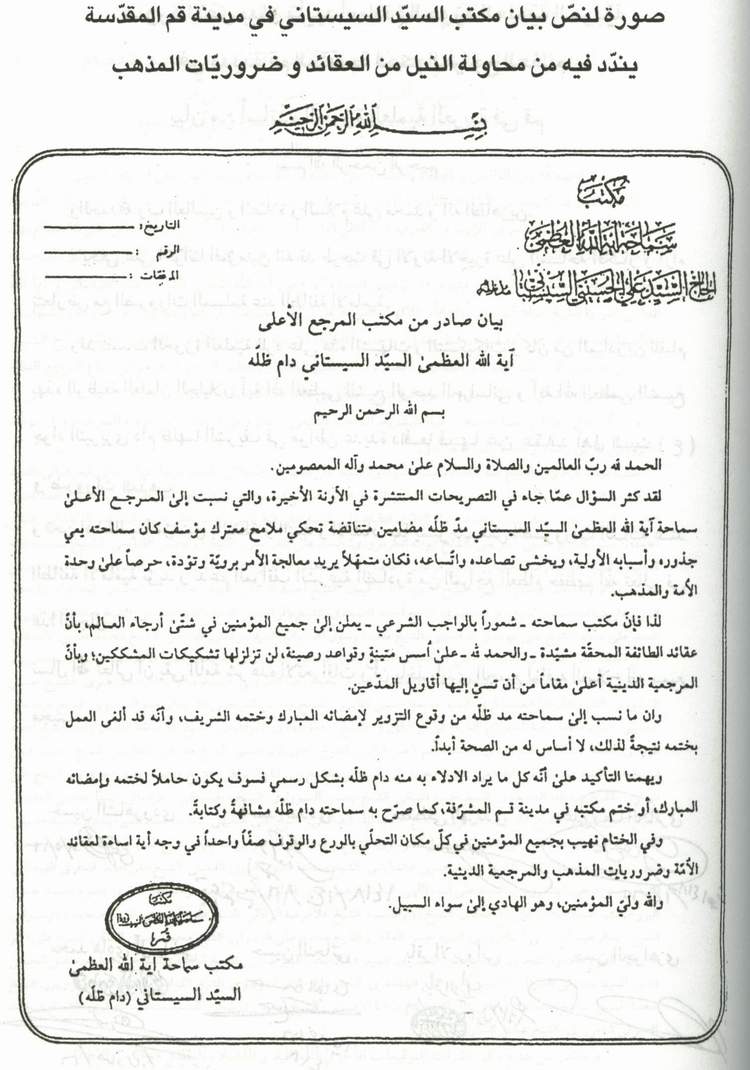 صورة لنصّ بيان مكتب السيّد السيستاني في مدينة قم المقدّسة
يندّد فيه من محاولة النيل من العقائد و ضروريّات المذهب
بسم الله الرحمن الرحيم
مكتب
سماحة آية الله العظمى
الحاج السيد علي الحسيني السيستاني مد ظله
التاريخ:
الرقم:
المرفقات:
بيان صادر من مكتب المرجع الأعلى
آية الله العظمىٰ السيّد السيستانى دام ظله
بسم الله الرحمن الرحيم
الحمد لله ربّ العالمين والصلاة والسلام علىٰ محمد وآله المعصومين.
لقد كثر السؤال عمّا جاء في التصريحات المنتشرة في الآونة الأخيرة، والتي نسبت إلىٰ المرجـع الأعلـىٰ
سماحة آية الله العظمىٰ السيّد السيستاني مدّ ظلّه مضامين متناقضة تحكي ملامح معترك مؤسف كان سماحته يعي
جذوره وأسبابه الأولية، ويخشى تصاعده واتّساعه، فكان متمهّلاً يريد معالجة الأمر برويّة وتؤدة، حرصاً علىٰ وحدة
الأمة والمذهب.
لذا فإنّ مكتب سماحته ـ شعوراً بالواجب الشرعي ـ يعلن إلىٰ جميع المؤمنين في شتّىٰ أرجاء العالم، بأنّ
عقائد الطائفة المحقّة مشيّدة ـ والحمد لله ـ علىٰ أسس متينةٍ وقواعد رصينة، لن تزلزلها تشكيكات المشككين؛ وبأنّ
المرجعية الدينية أعلىٰ مقاماً من أن تسيئ إليها أقاويل المدّعين.
وان ما نسب إلىٰ سماحته مد ظلّه من وقوع التزوير لإمضائه المبارك وختمه الشريف، وأنّه قد ألغى العمل
بختمه نتيجةً لذلك، لا أساس له من الصحة أبداً.
ويهمنا التأكيد علىٰ أنّه كل ما يراد الادلاء به منه دام ظلّه بشكل رسمي فسوف يكون حاملاً لختمه وإمضائه
المبارك، أو ختم مكتبه في مدينة قـم المشرّفة، كما صرح به سماحته دام ظلّه مشافهةً وكتابةً.
وفي الختام نهيب بجميع المؤمنين في كلّ مكان التحلّي بالورع والوقوف صفّاً واحداً في وجه أية اساءة لعقائد
الأمّة وضروريات المذهب والمرجعية الدينية.
والله وليّ المؤمنين، وهو الهادي إلىٰ سواء السبيل.
مكتب سماحة آية الله العظمىٰ
السيّد السيستاني (دام ظلّه)